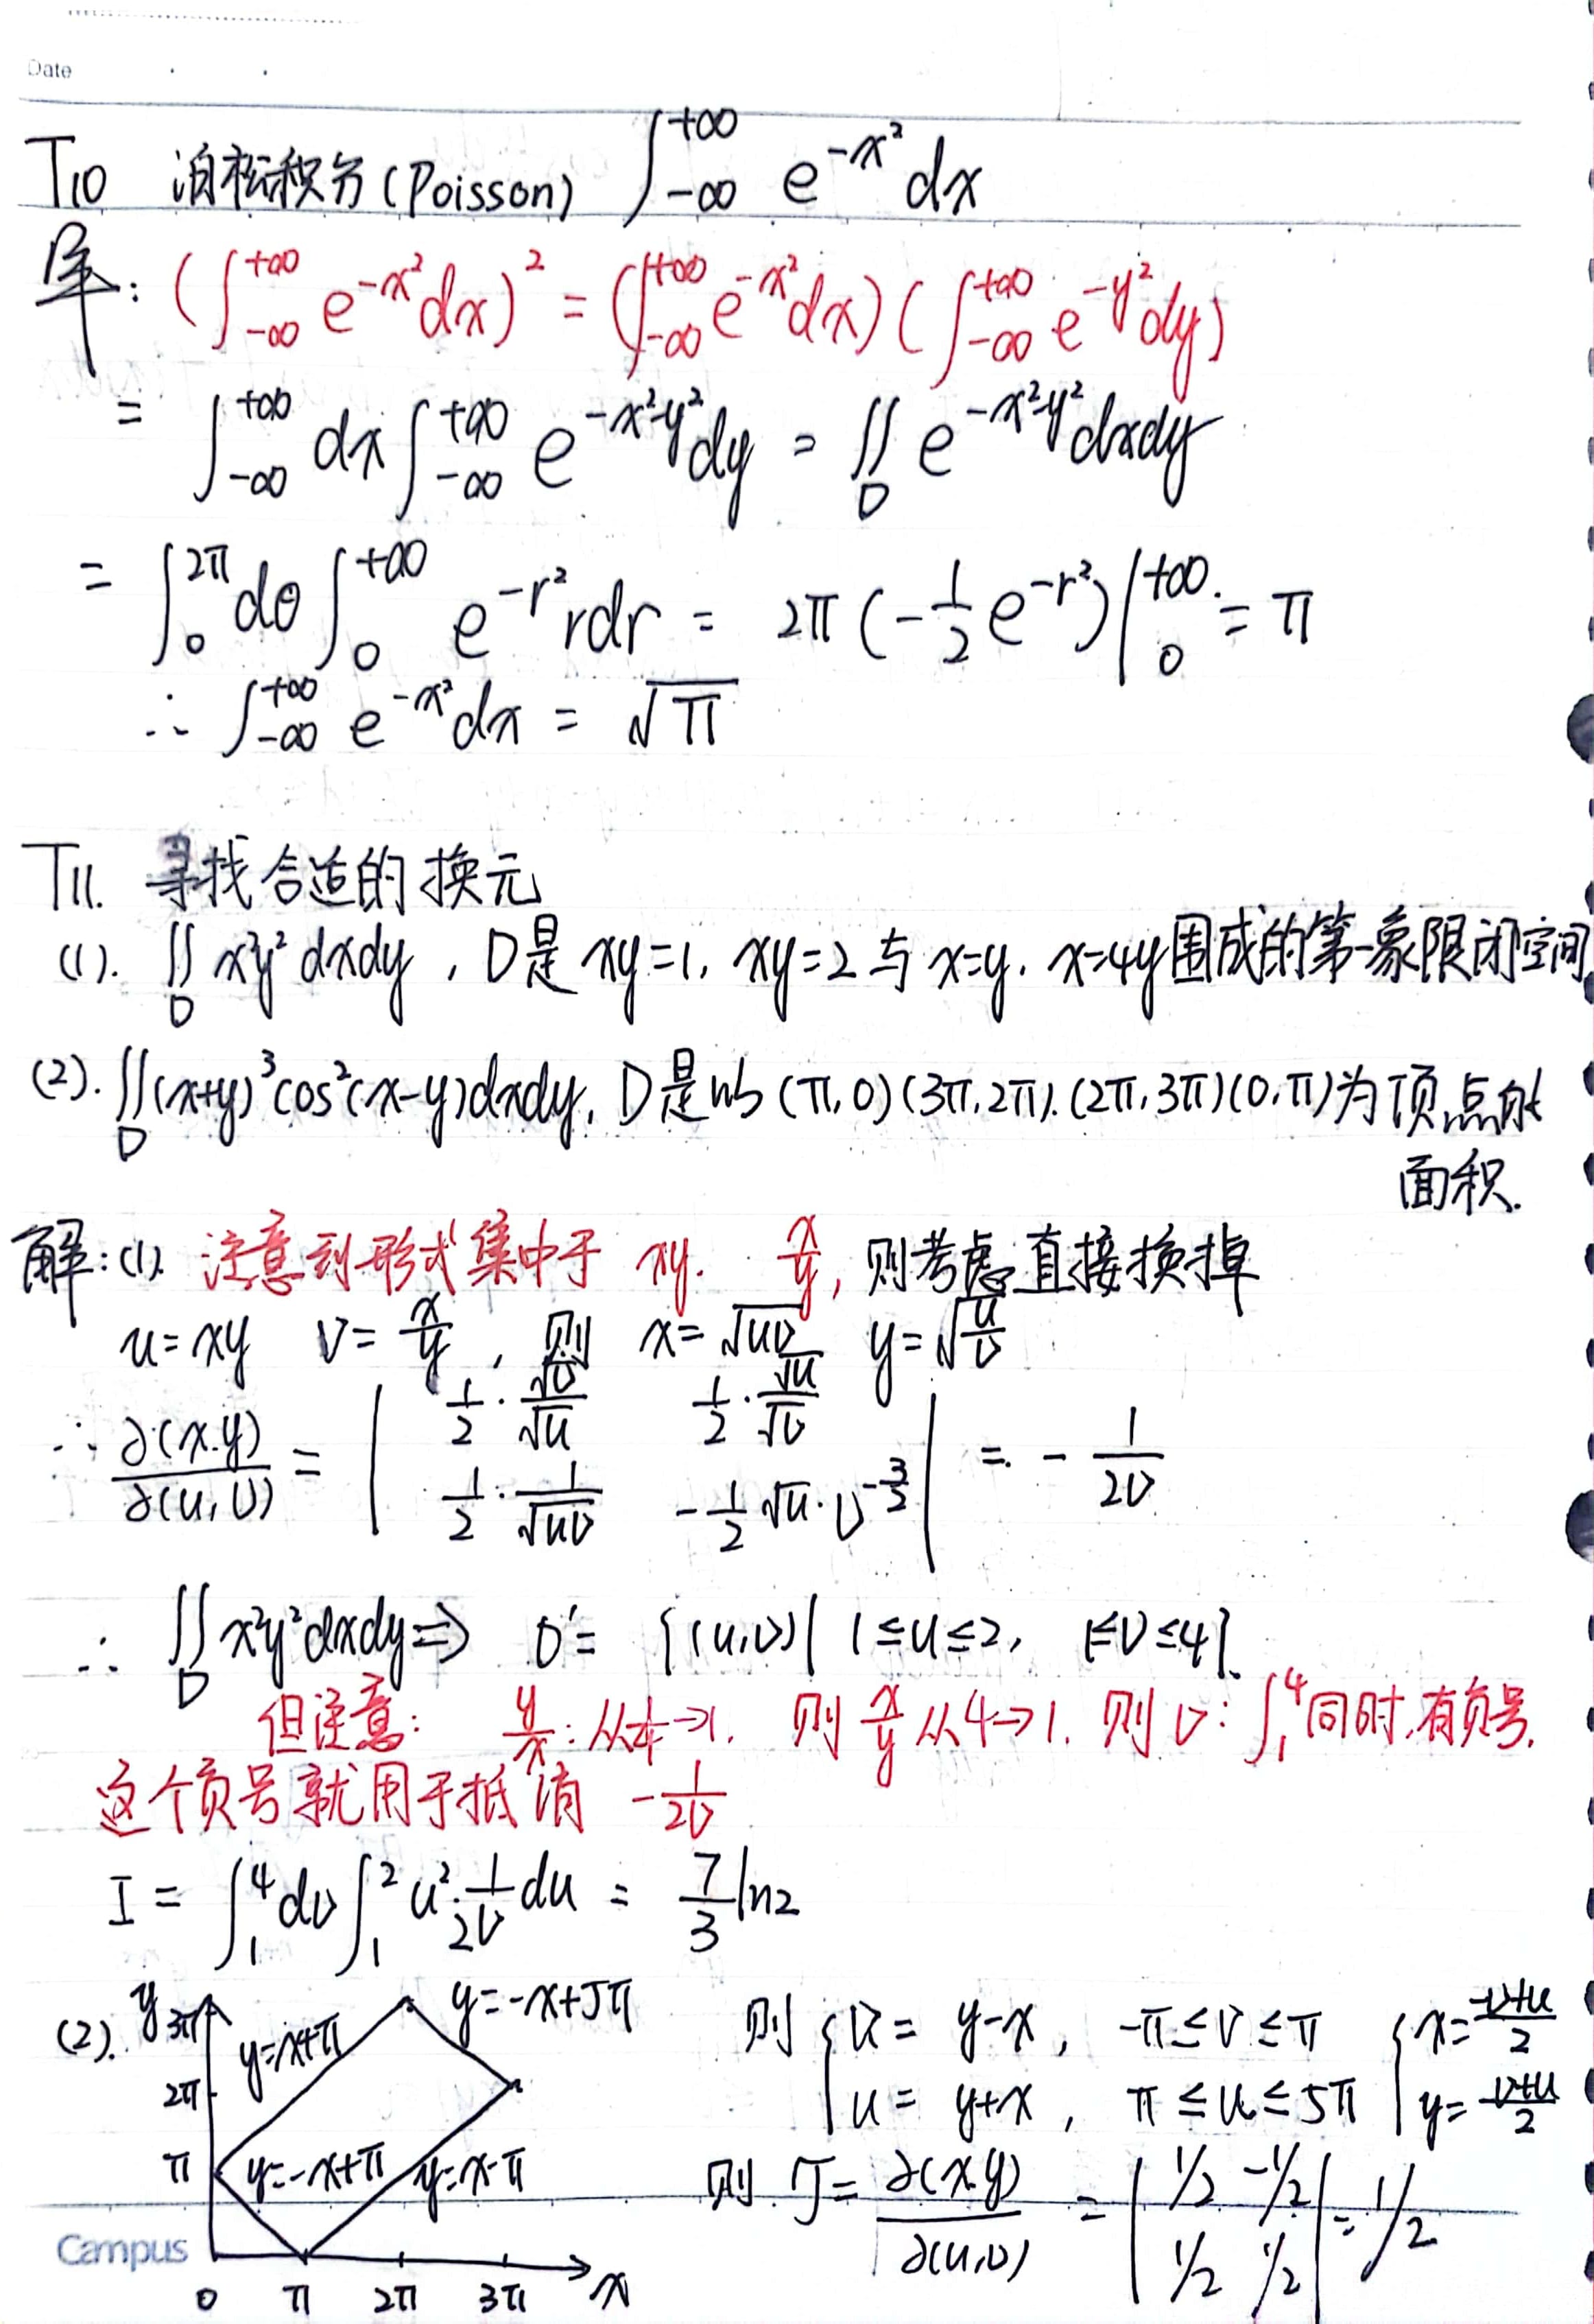 Date
T10 泊松积分(Poisson) ∫_{-∞}^{+∞} e^{-x²}dx
解: (∫_{-∞}^{+∞} e^{-x²}dx)² = (∫_{-∞}^{+∞} e^{-x²}dx)(∫_{-∞}^{+∞} e^{-y²}dy)
= ∫_{-∞}^{+∞} dx ∫_{-∞}^{+∞} e^{-x²-y²}dy = ∬_D e^{-x²-y²}dxdy
= ∫_0^{2π} dθ ∫_0^{+∞} e^{-r²} rdr = 2π(-1/2 e^{-r²})|_0^{+∞} = π
∴ ∫_{-∞}^{+∞} e^{-x²}dx = √π
T11. 寻找合适的换元
(1). ∬_D x²y² dxdy, D是 xy=1, xy=2 与 x=y, x=4y围成的第一象限闭空间
(2). ∬_D (x+y)³cos²(x-y)dxdy, D是以(π,0)(3π,2π).(2π,3π)(0,π)为顶点的
面积.
解:(1). 注意到形式集中于 xy. x/y, 则考虑直接换掉
u=xy v=x/y, 则 x=√uv y=√(u/v)
∴ ∂(x.y)/∂(u,v) = | 1/2·√v/√u 1/2·√u/√v ; 1/2·1/√uv -1/2√u·v^{-3/2} | = - 1/2v
∴ ∬_D x²y²dxdy ⇒ D'= {(u,v)| 1≤u≤2, 1≤v≤4}.
但注意: y/x:从1/4→1. 则 x/y 从4→1. 则 v: ∫_1^4 同时有负号.
这个负号就用于抵消 -1/2v
I = ∫_1^4 dv ∫_1^2 u²·1/2v du = 7/3 ln2
(2). y 3π y=x+π y=-x+5π 则 { v = y-x, -π≤v≤π { x=(-v+u)/2
2π u = y+x, π≤u≤5π y=(v+u)/2
π y=-x+π y=x-π 则 J= ∂(x.y)/∂(u,v) = | 1/2 -1/2 ; 1/2 1/2 | = 1/2
Campus
0 π 2π 3π x